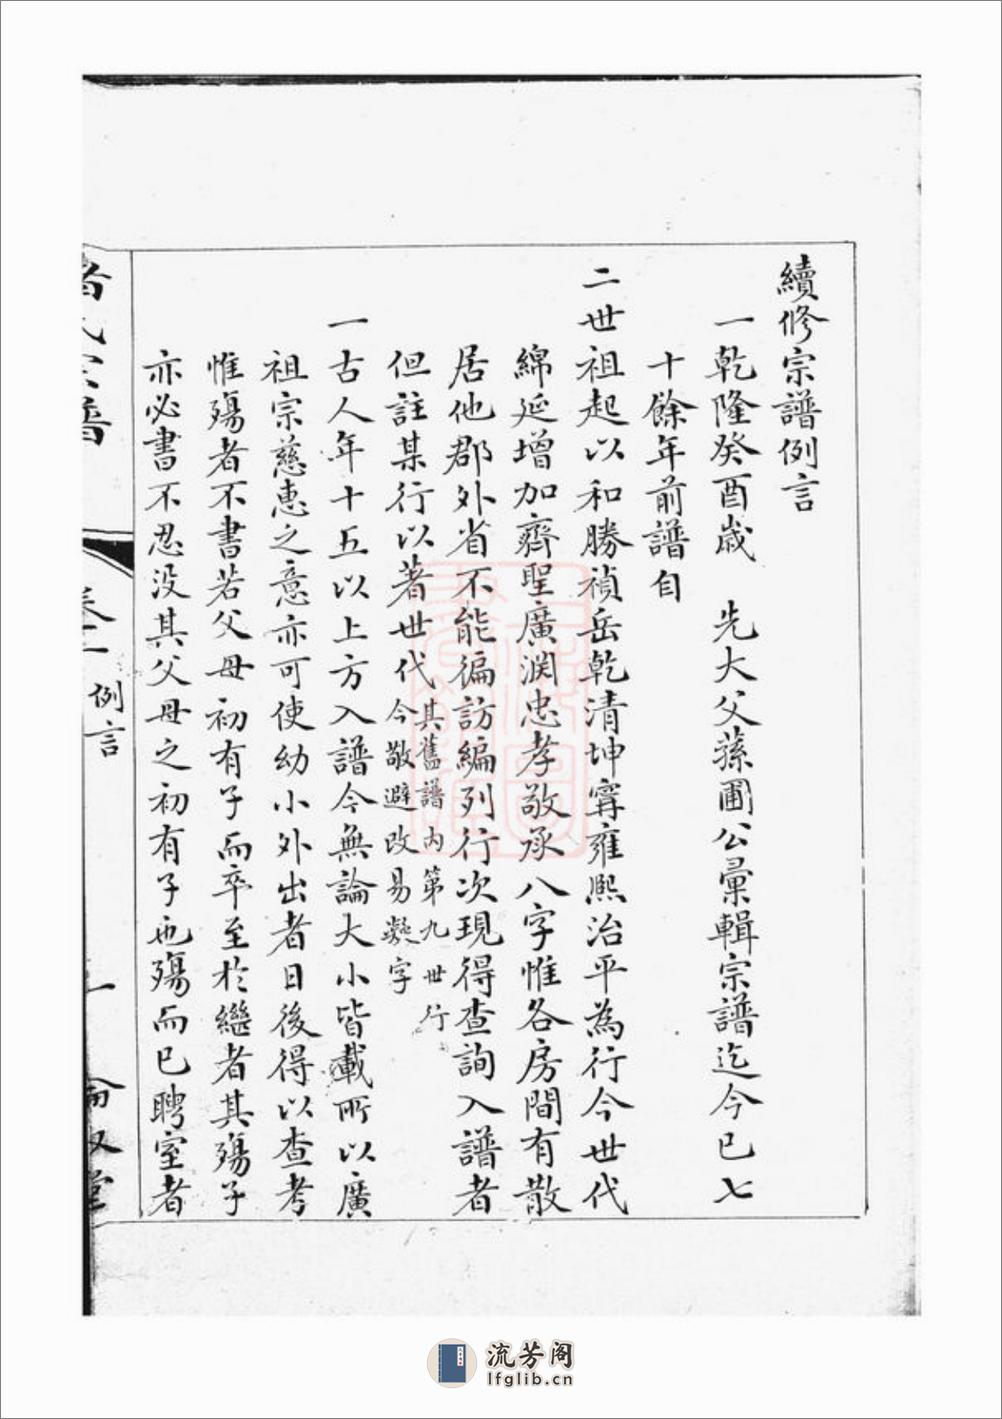 續修宗譜例言
一乾隆癸酉歲　先大父蓀圃公彙輯宗譜迄今已七
十餘年前譜自
二世祖起以和勝禎岳乾清坤甯雍熙治平為行今世代
綿延增加齊聖廣渊忠孝敬承八字惟各房間有散
居他郡外省不能徧訪編列行次現得查詢入譜者
但註某行以著世代其舊譜内第九世行
今敬避改易凝字
一古人年十五以上方入譜今無論大小皆載所以廣
祖宗慈惠之意亦可使幼小外出者日後得以查考
惟殤者不書若父母初有子而卒至於繼者其殤子
亦必書不忍没其父母之初有子也殤而已聘室者
氏宗譜
卷二
例言
一
流芳阁
lfglib.cn